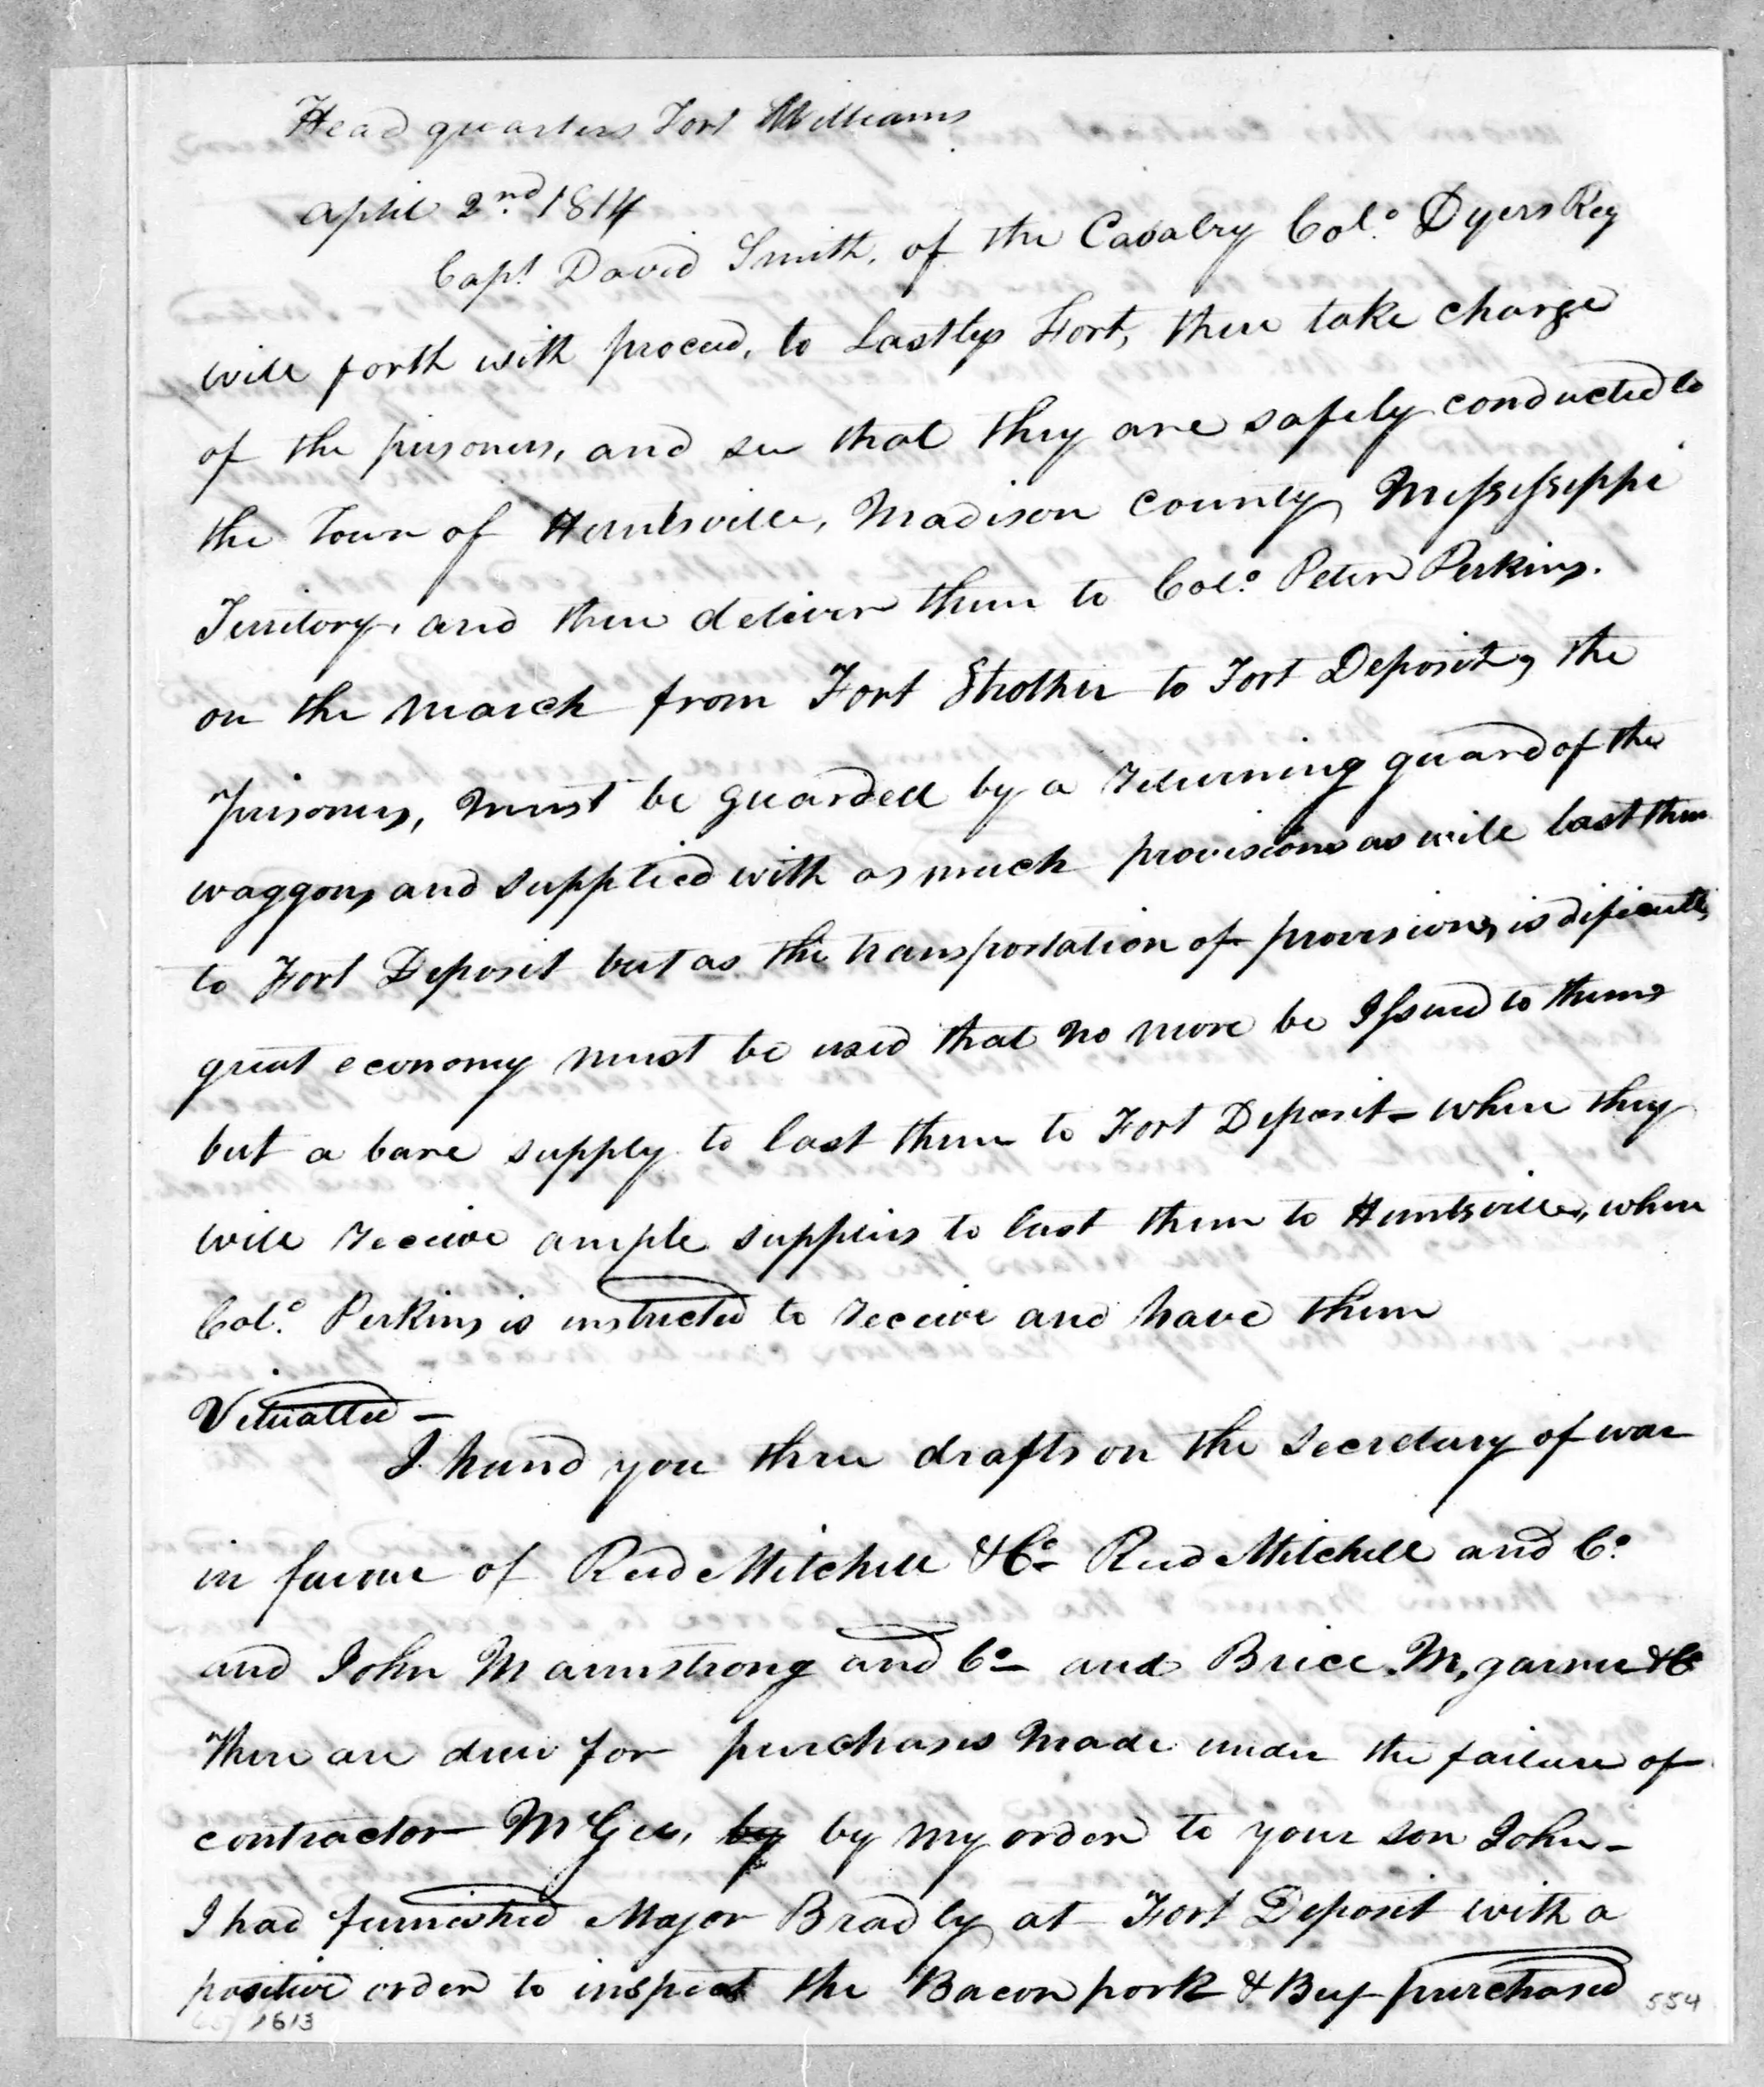 Head quarters Fort Williams
April 2nd 1814
Capt. David Smith, of the Cavalry Colo. Dyers Reg
will forth with proceed, to Lastlys Fort, there take charge
of the prisoners, and see that they are safely conducted to
the Town of Huntsville, Madison County Mississippi
Territory, and there deliver them to Colo. Peter Perkins.
on the march from Fort Strother to Fort Deposit, the
Prisoners, must be guarded by a returning guard of the
waggons, and supplied with as much provisions as will last them
to Fort Deposit but as the transportation of provisions, is dificult,
great economy must be used that no more be Issued to them
but a bare supply to last them to Fort Deposit – where they
will receive ample supplies to last them to Huntsville, where
Colo. Perkins is instructed to receive and have them
Vitualled –
I hand you three drafts on the secretary of war
in favour of Reed Mitchell & Co – Reed Mitchell and Co.
and John M armstrong and Co – and Brice M, garner & Co
There are due for purchases made under the failure of
contractor McGee, by by my order to your son John –
I had furnished Major Bradly at Fort Deposit with a
positive order to inspect the Bacon pork & Beef purchased
1613
554